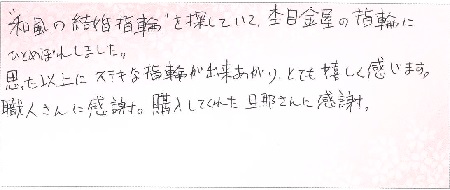 "和風の結婚指輪"を探していて、杢目金屋の指輪に
ひとめぼれしました。
思った以上にステキな指輪が出来あがり、とても嬉しく感じます。
職人さんに感謝す。購入してくれた旦那さんに感謝。